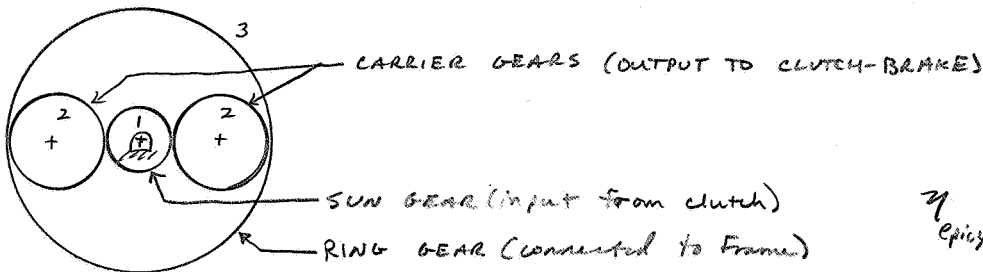 3
CARRIER GEARS (OUTPUT TO CLUTCH-BRAKE)
2 1 2
SUN GEAR (input from clutch)
η
RING GEAR (connected to Frame)